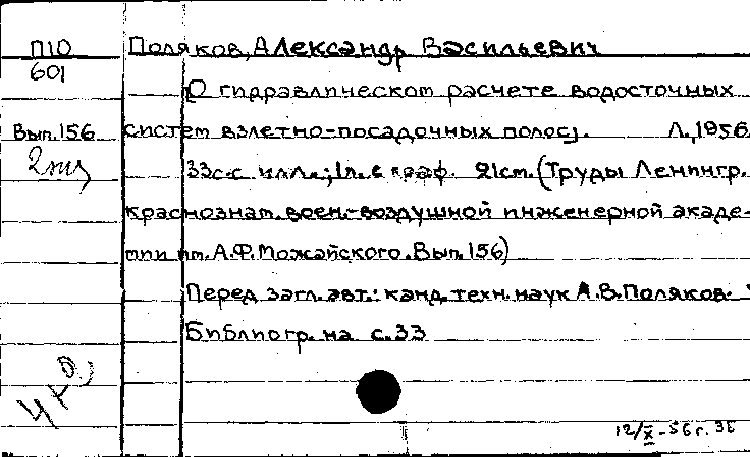 П10
601
Поляков, Александр Васильевич
О гидравлическом расчете водосточных
Вып. 156
систем взлетно-посадочных полос.
Л., 1956.
2 экз
33 с. с илл.; 1 л. с граф. 21 см. (Труды Ленингр.
краснознам. воен.-воздушной инженерной акаде-
мии им. А.Ф. Можайского. Вып. 156)
Перед загл. авт.: канд. техн. наук А.В. Поляков.
Библиогр. на с. 33
12/X-56 г.